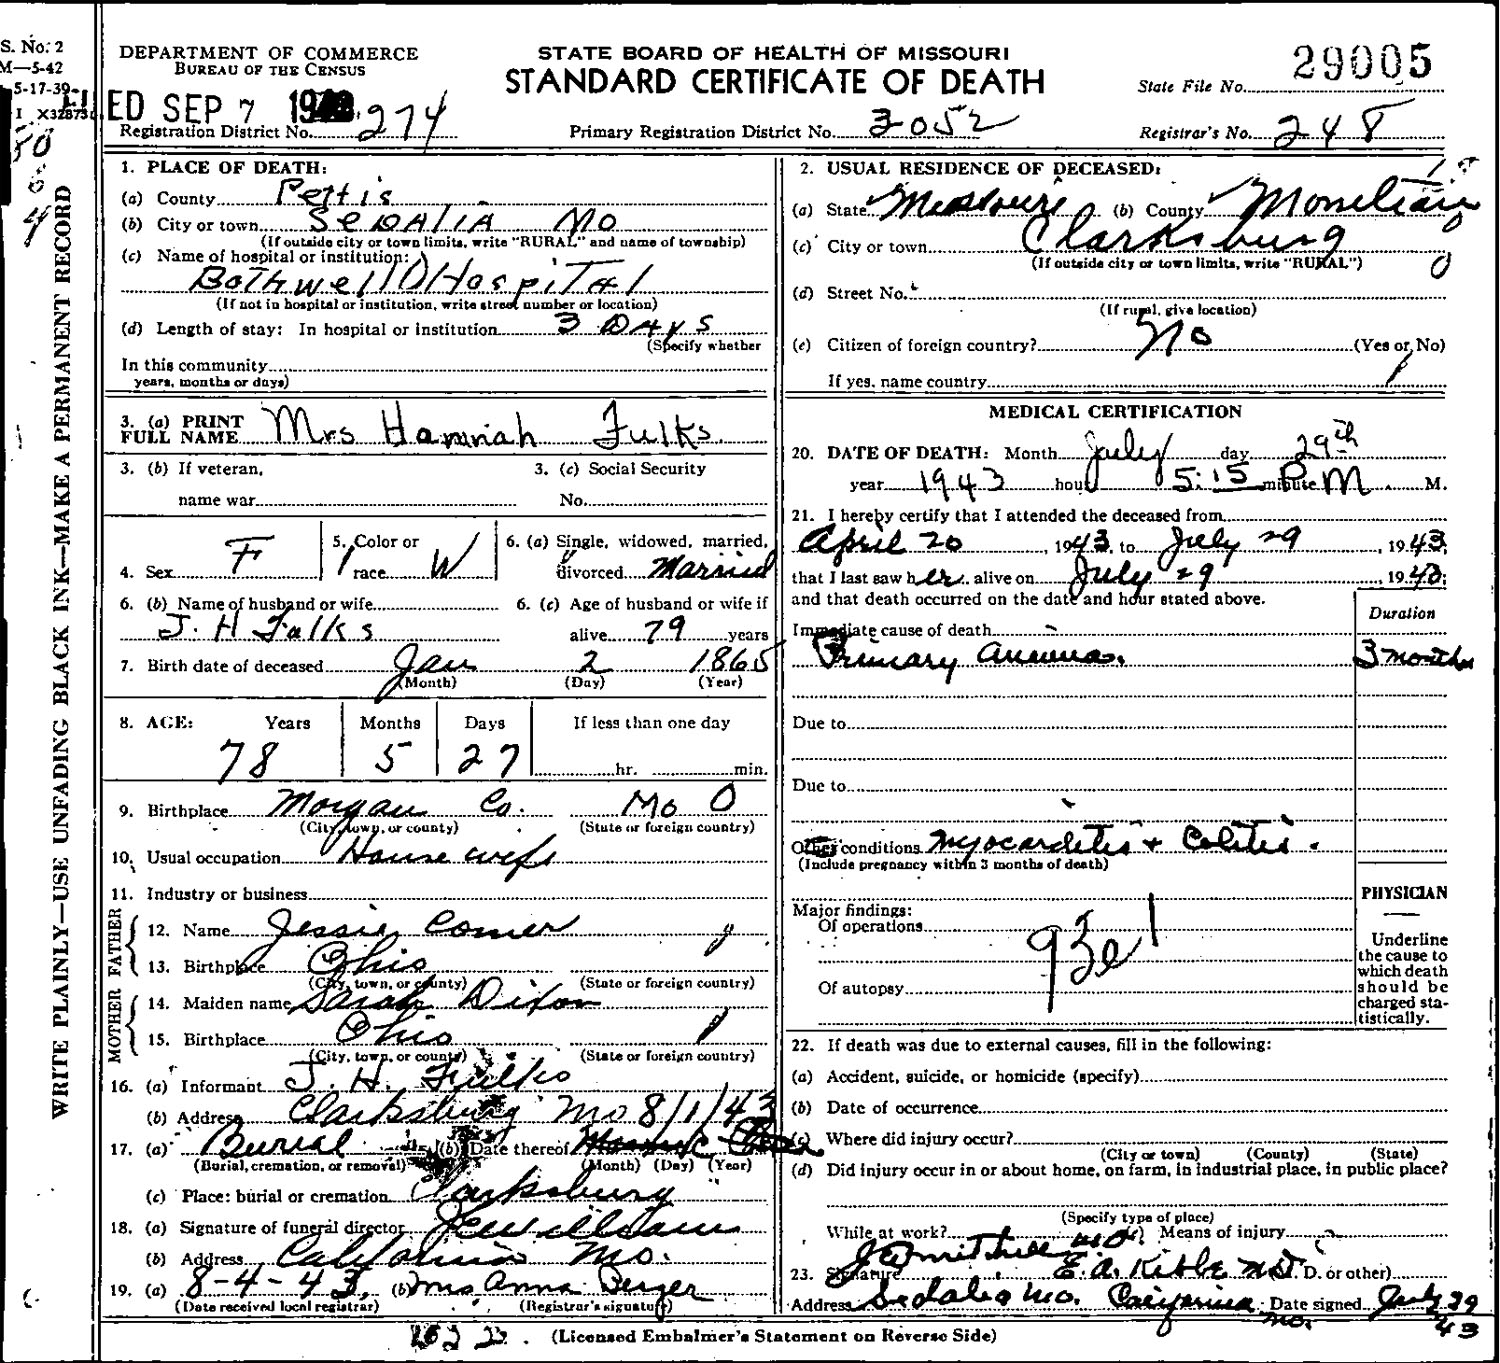 S. No. 2
M—5-42
5-17-39
I X32873
DEPARTMENT OF COMMERCE
BUREAU OF THE CENSUS
STATE BOARD OF HEALTH OF MISSOURI
STANDARD CERTIFICATE OF DEATH
State File No. 29005
ED SEP 7
Registration District No. 274
Primary Registration District No. 3052
Registrar's No. 248
WRITE PLAINLY—USE UNFADING BLACK INK—MAKE A PERMANENT RECORD
1. PLACE OF DEATH:
(a) County Pettis
(b) City or town SEDALIA MO
(If outside city or town limits, write "RURAL" and name of township)
(c) Name of hospital or institution:
Bothwell Hospital
(If not in hospital or institution, write street number or location)
(d) Length of stay: In hospital or institution 3 Days
(Specify whether
In this community
years, months or days)
2. USUAL RESIDENCE OF DECEASED:
(a) State Missouri (b) County Moniteau
(c) City or town Clarksburg
(If outside city or town limits, write "RURAL")
(d) Street No.
(If rural, give location)
(e) Citizen of foreign country? No (Yes or No)
If yes, name country
3. (a) PRINT
FULL NAME Mrs Hannah Fulks
3. (b) If veteran,
name war
3. (c) Social Security
No.
4. Sex F
5. Color or
race W
6. (a) Single, widowed, married,
divorced Married
6. (b) Name of husband or wife
J. H Fulks
6. (c) Age of husband or wife if
alive 79 years
7. Birth date of deceased Jan 2 1865
(Month) (Day) (Year)
8. AGE: Years Months Days If less than one day
78 5 27 hr. min.
9. Birthplace Morgan Co. Mo
(City, town, or county) (State or foreign country)
10. Usual occupation House wife
11. Industry or business
FATHER
12. Name Jessie Comer
13. Birthplace Ohio
(City, town, or county) (State or foreign country)
MOTHER
14. Maiden name Sarah Dixon
15. Birthplace Ohio
(City, town, or county) (State or foreign country)
16. (a) Informant J. H. Fulks
(b) Address Clarksburg Mo 8/1/43
17. (a) Burial (b) Date thereof
(Burial, cremation, or removal) (Month) (Day) (Year)
(c) Place: burial or cremation Clarksburg
18. (a) Signature of funeral director
(b) Address California Mo.
19. (a) 8-4-43 (b) Mrs Anna Berger
(Date received local registrar) (Registrar's signature)
MEDICAL CERTIFICATION
20. DATE OF DEATH: Month July day 29th
year 1943 hour 5:15 minute P M M.
21. I hereby certify that I attended the deceased from
April 20, 1943, to July 29, 1943,
that I last saw her alive on July 29, 1943;
and that death occurred on the date and hour stated above.
Duration
Immediate cause of death
Primary anemia. 3 months
Due to
Due to
Other conditions Myocarditis + Colitis.
(Include pregnancy within 3 months of death)
Major findings:
Of operations
93e
Of autopsy
PHYSICIAN
Underline
the cause to
which death
should be
charged sta-
tistically.
22. If death was due to external causes, fill in the following:
(a) Accident, suicide, or homicide (specify)
(b) Date of occurrence
(c) Where did injury occur?
(City or town) (County) (State)
(d) Did injury occur in or about home, on farm, in industrial place, in public place?
(Specify type of place)
While at work? (e) Means of injury
23. Signature Mitchell MD E. A. Kibbe M.D. (M. D. or other)
Address Sedalia Mo. California Mo. Date signed July 29 43
(Licensed Embalmer's Statement on Reverse Side)